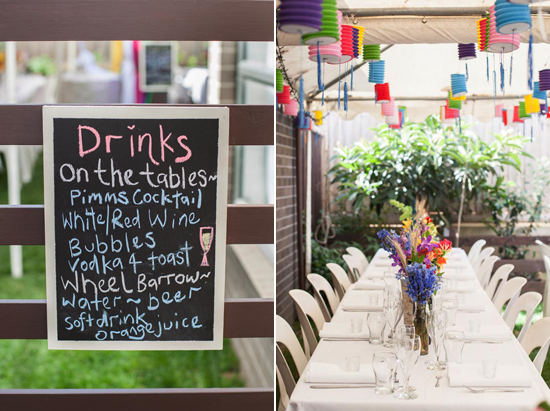 Drinks
On the tables~
Pimms Cocktail
White/Red Wine
Bubbles
Vodka 4 toast
Wheel Barrow~
Water ~ beer
Soft drink
orange juice